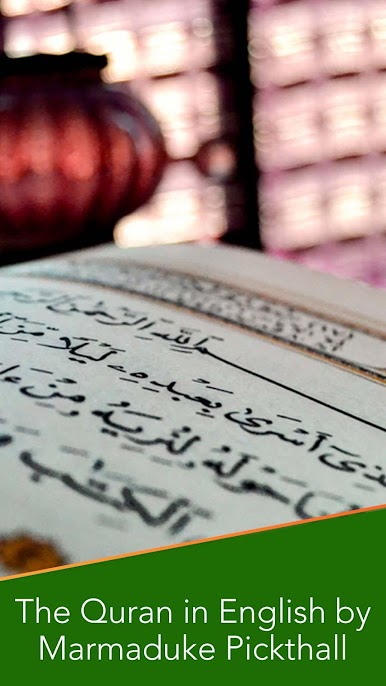 اللَّهِ الرَّحْمَٰنِ
أَسْرَىٰ بِعَبْدِهِۦ لَيْلًا مِّنَ
حَوْلَهُۥ لِنُرِيَهُۥ مِنْ
الْكِتَٰبَ
The Quran in English by
Marmaduke Pickthall